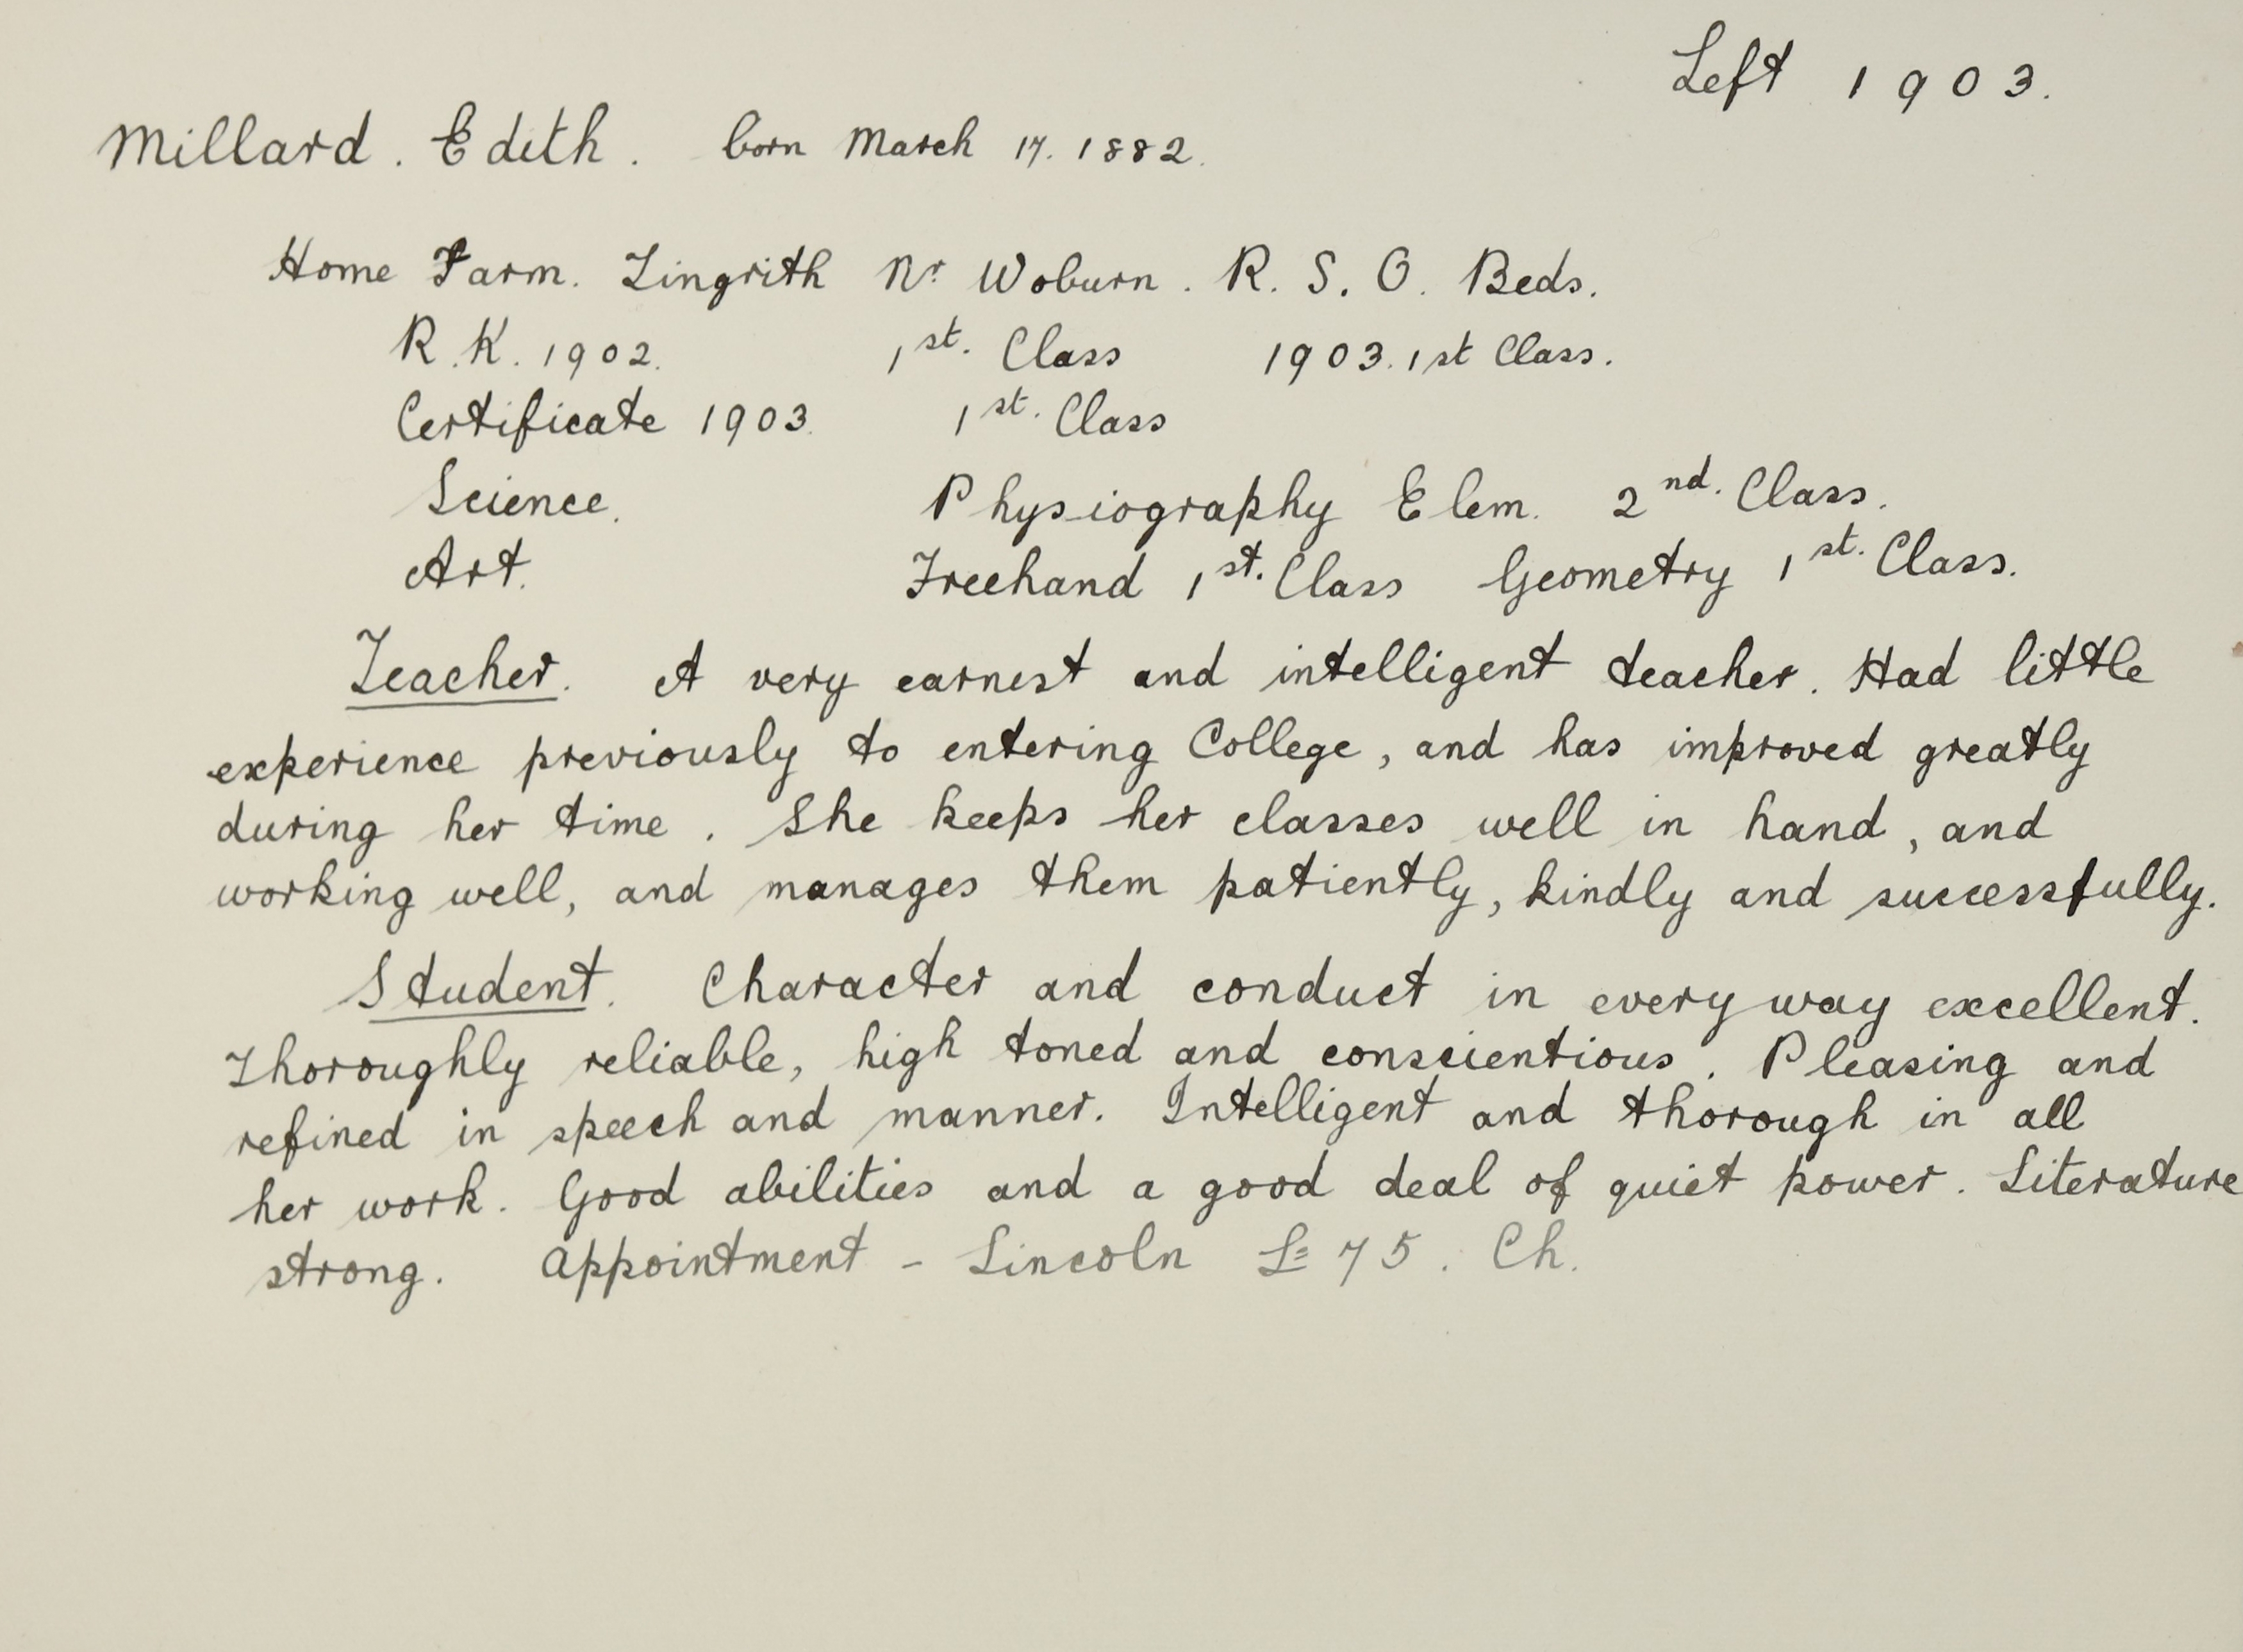 Left 1903.
Millard. Edith. born March 17. 1882.
Home Farm. Tingrith Nr Woburn. R. S. O. Beds.
R.K. 1902. 1st. Class 1903. 1st Class.
Certificate 1903. 1st. Class
Science. Physiography Elem. 2nd. Class.
Art. Freehand 1st. Class Geometry 1st. Class.
Teacher. A very earnest and intelligent teacher. Had little
experience previously to entering College, and has improved greatly
during her time. She keeps her classes well in hand, and
working well, and manages them patiently, kindly and successfully.
Student. Character and conduct in every way excellent.
Thoroughly reliable, high toned and conscientious. Pleasing and
refined in speech and manner. Intelligent and thorough in all
her work. Good abilities and a good deal of quiet power. Literature
strong. Appointment - Lincoln £75. Ch.